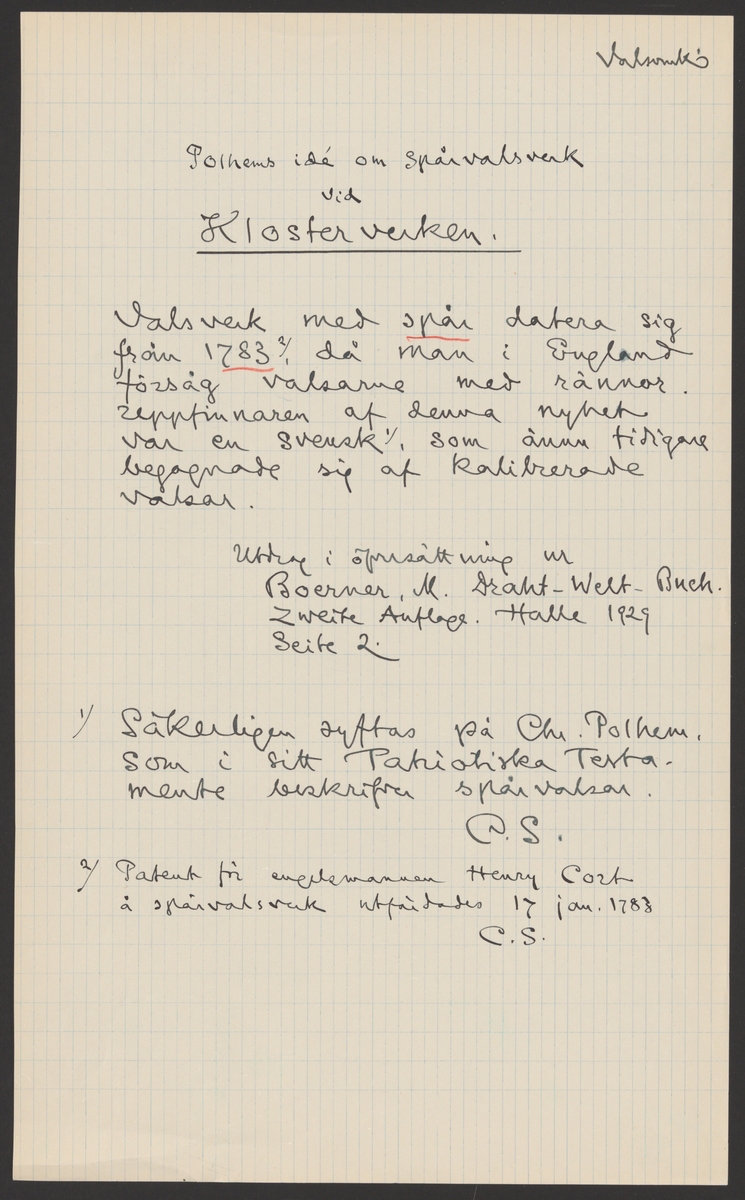 Valsverk
Polhems idé om spårvalsverk
vid
Klosterverken.
Valsverk med spår datera sig
från 1783 2/, då man i England
försåg valsarne med rännor.
Uppfinnaren af denna nyhet
var en svensk 1/, som ännu tidigare
begagnade sig af kalibrerade
valsar.
Utdrag i öfversättning ur
Boerner, M. Draht-Welt-Buch.
Zweite Auflage. Halle 1929
Seite 2.
1/ Säkerligen syftas på Chr. Polhem,
som i sitt Patriotiska Testa-
mente beskrifver spårvalsar.
C.S.
2/ Patent för engelsmannen Henry Cort
å spårvalsverk utfärdades 17 jan. 1783
C.S.